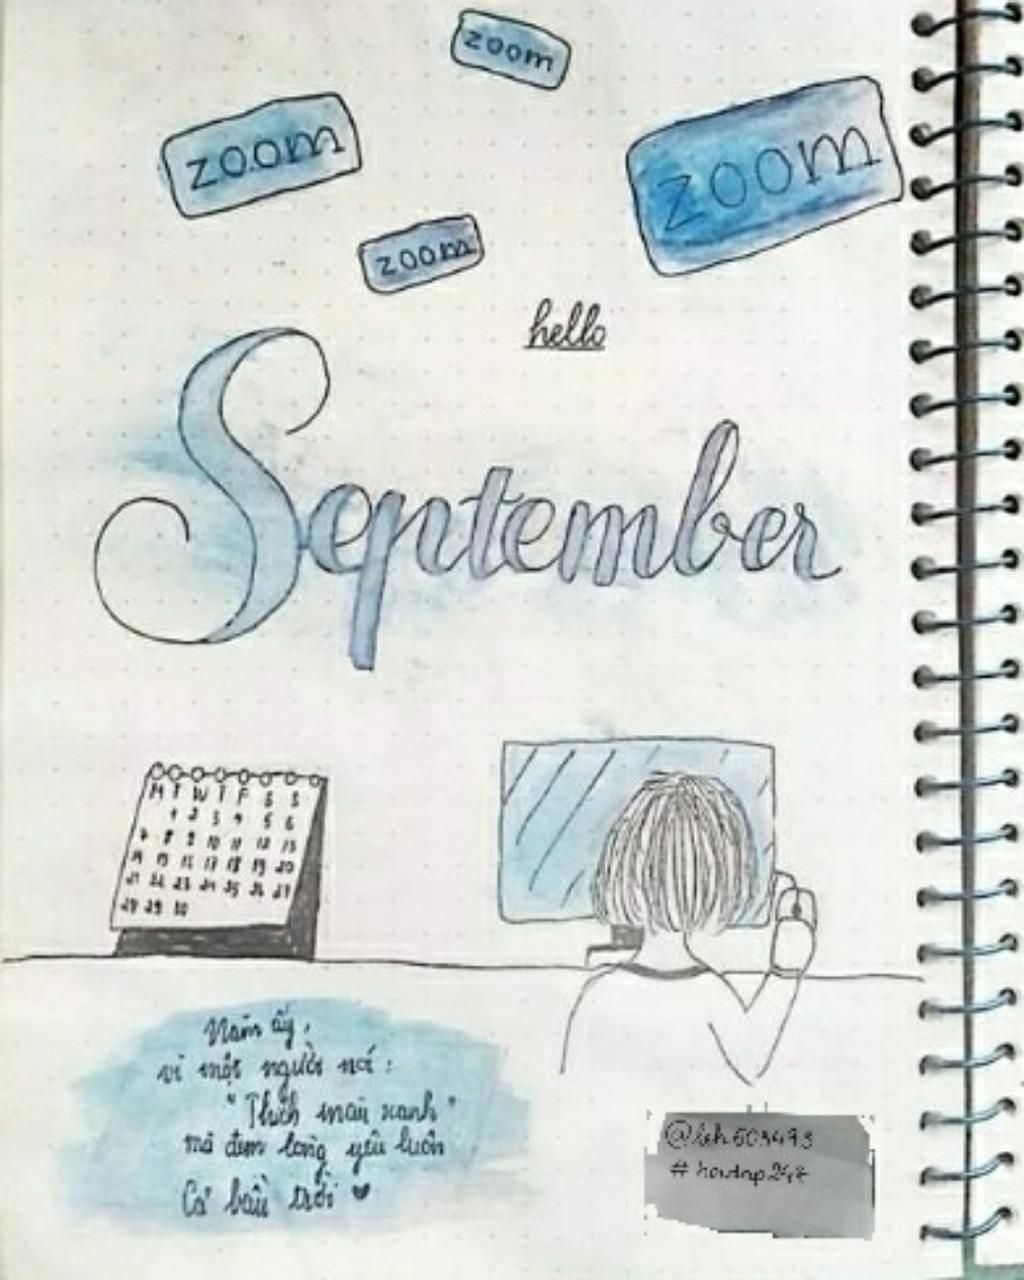 zoom
zoom
zoom
zoom
hello
September
M T W T F S S
1 2 3 4 5 6
7 8 9 10 11 12 13
14 15 16 17 18 19 20
21 22 23 24 25 26 27
28 29 30
Năm ấy,
vì một người nói:
"Thích màu xanh"
mà đem lòng yêu luôn
Cả bầu trời